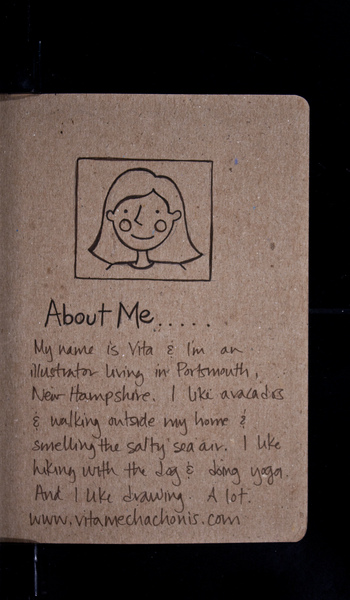 About Me.....
My name is Vita & I'm an
illustrator living in Portsmouth,
New Hampshire. I like avacados
& walking outside my home &
smelling the salty sea air. I like
hiking with the dog & doing yoga.
And I like drawing. A lot.
www.vitamechachonis.com